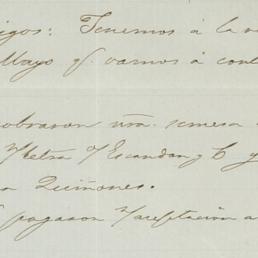 igos: Tenemos á la v
Mayo q. vamos á cont
obraron ntra. remesa
Metra y Escandon y C y
a Quiñones.
pagaron y aceptacion a